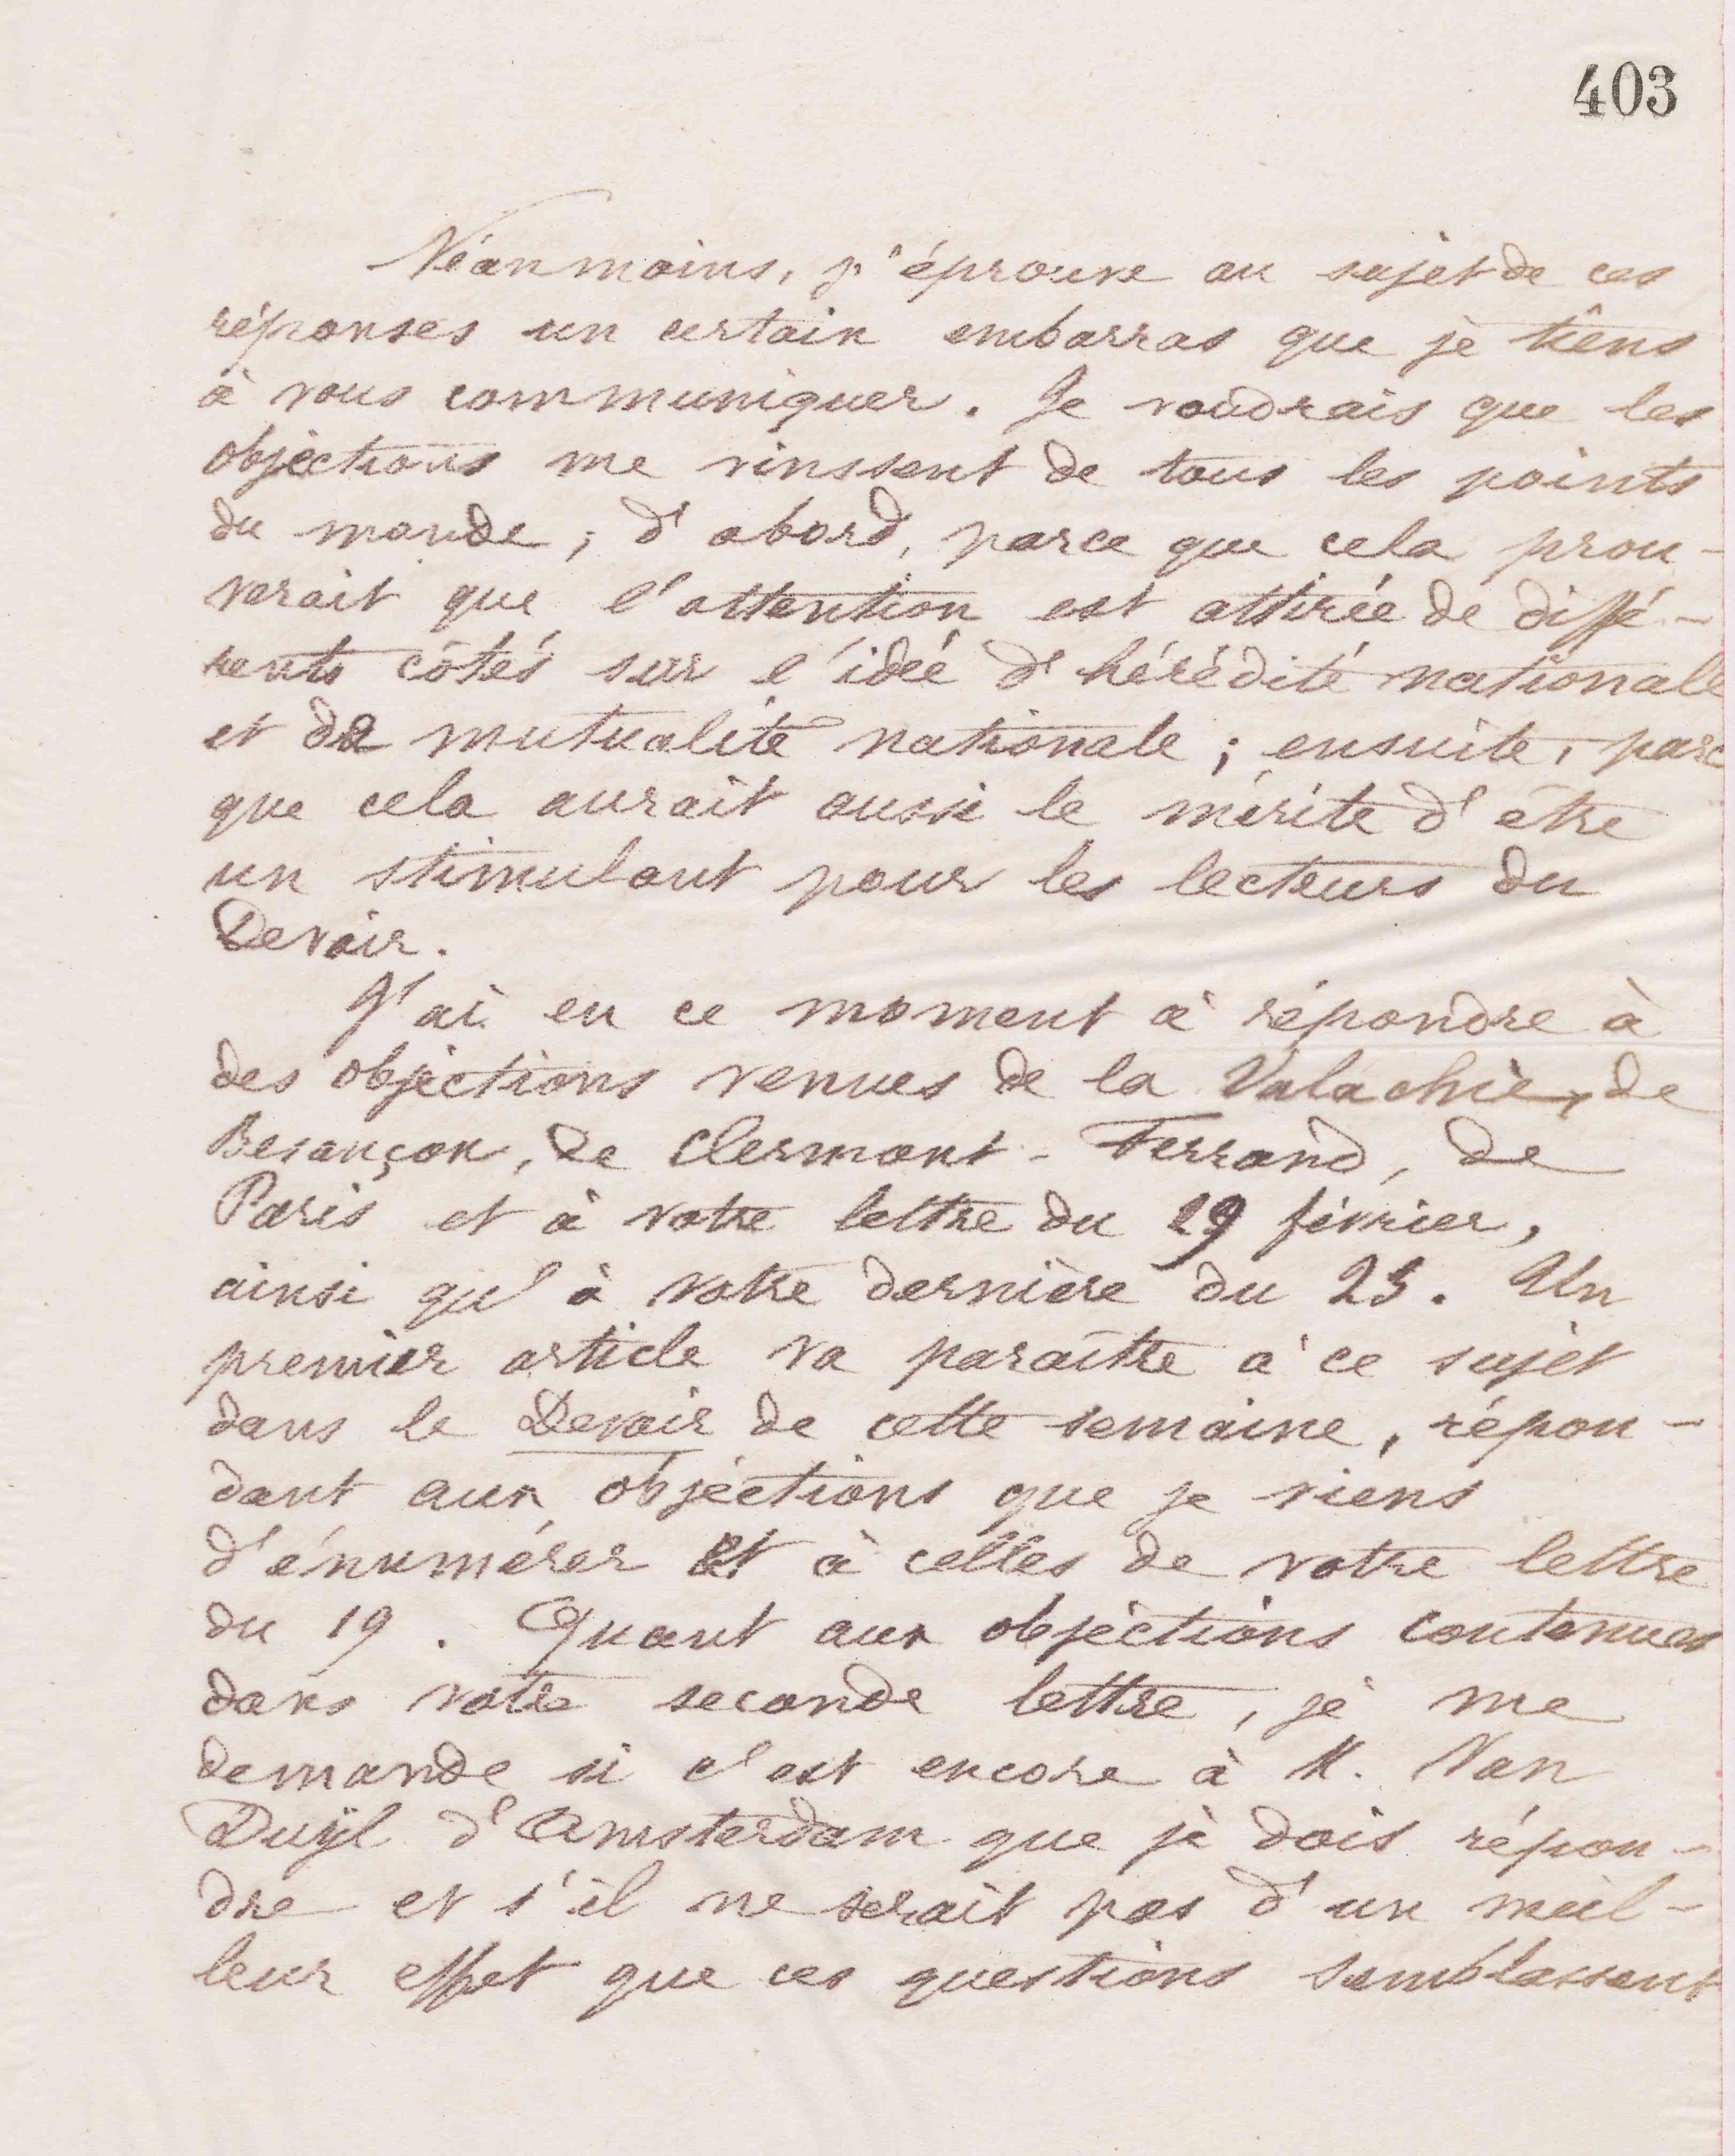 403
Néanmoins, j'éprouve au sujet de ces
réponses un certain embarras que je tiens
à vous communiquer. Je voudrais que les
objections me vinssent de tous les points
du monde ; d'abord, parce que cela prou-
verait que l'attention est attirée de diffé-
rents côtés sur l'idée d'hérédité nationale
et de mutualité nationale ; ensuite, parc
que cela aurait aussi le mérite d'être
un stimulant pour les lecteurs du
Devoir.
J'ai en ce moment à répondre à
des objections venues de la Valachie, de
Besançon, de Clermont-Ferrand, de
Paris et à votre lettre du 29 février,
ainsi qu'à votre dernière du 25. Un
premier article va paraître à ce sujet
dans le Devoir de cette semaine, répon-
dant aux objections que je viens
d'énumérer et à celles de votre lettre
du 19. Quant aux objections contenues
dans votre seconde lettre, je me
demande si c'est encore à M. Van
Duÿl d'Amsterdam que je dois répon-
dre et s'il ne serait pas d'un meil-
leur effet que ces questions semblassent